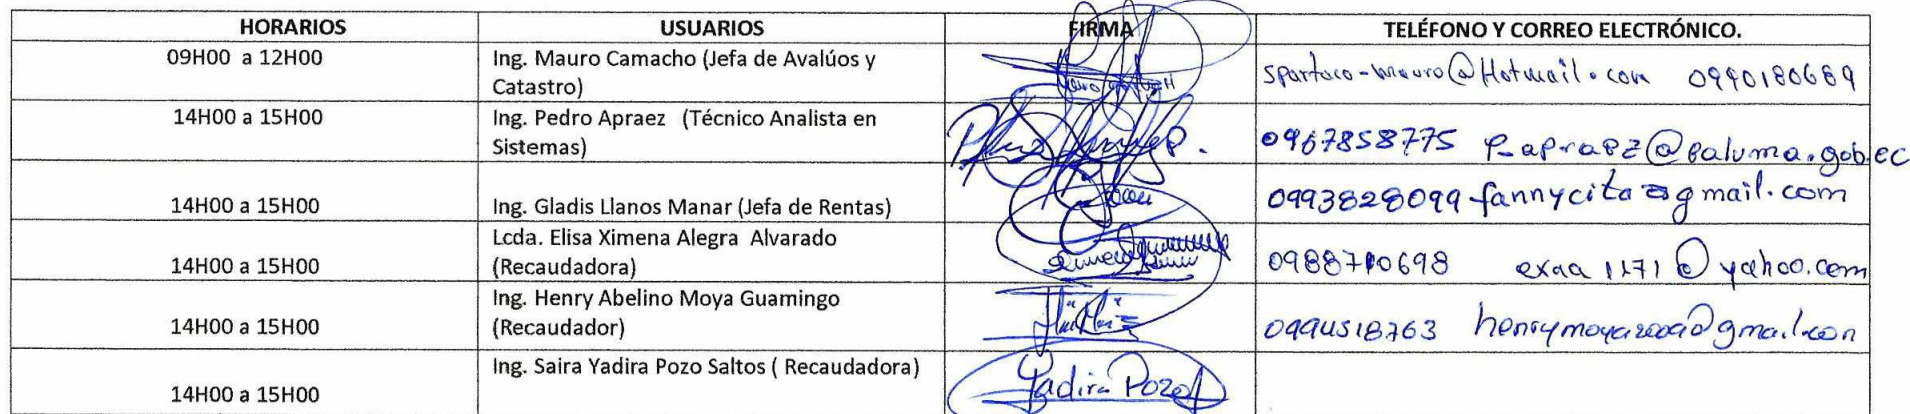 HORARIOS USUARIOS FIRMA TELÉFONO Y CORREO ELECTRÓNICO.
09H00 a 12H00 Ing. Mauro Camacho (Jefa de Avalúos y
Catastro) spartaco-mauro@Hotmail.com 0990180689
14H00 a 15H00 Ing. Pedro Apraez (Técnico Analista en
Sistemas) 0967858775 p-apraez@caluma.gob.ec
14H00 a 15H00 Ing. Gladis Llanos Manar (Jefa de Rentas) 0993828099-fannycita@gmail.com
Lcda. Elisa Ximena Alegra Alvarado
14H00 a 15H00 (Recaudadora) 0988710698 exaa1171@yahoo.com
Ing. Henry Abelino Moya Guamingo
14H00 a 15H00 (Recaudador) 0994518763
Ing. Saira Yadira Pozo Saltos ( Recaudadora)
14H00 a 15H00 Yadira Pozo